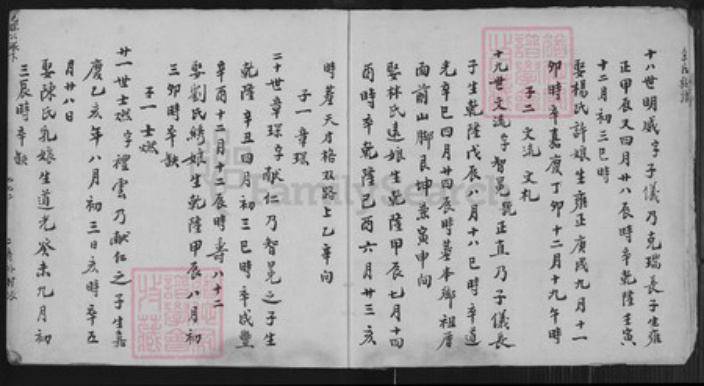 十八世明威字子儀乃克瑞長子生雍
正甲辰又四月廿八辰時卒乾隆壬寅
十二月初三巳時
娶楊氏許娘生雍正庚戌九月十一
卯時卒嘉慶丁卯十二月十九午時
子二 文流 文礼
十九世文流字智冕號正直乃子儀長
子生乾隆戊辰 月十八巳時卒道
光辛巳四月廿四辰時墓本鄉祖厝
面前山脚艮坤兼寅申向
娶林氏遠娘生乾隆甲辰七月十四
酉時卒乾隆己酉六月廿三亥
時墓天才格双路上乙辛向
子一 章璖
二十世章璖字献仁乃智冕之子生
乾隆辛丑四月初三巳時卒咸豐
辛酉十二月十二辰時壽八十二
娶劉氏綉娘生乾隆甲辰八月初
三卯時卒缺
子一 士燃
廿一世士燃字禮雲乃献仁之子生嘉
慶乙亥年八月初三日亥時卒五
月廿八日
娶陳氏乳娘生道光癸未九月初
三辰時卒缺
FamilySearch